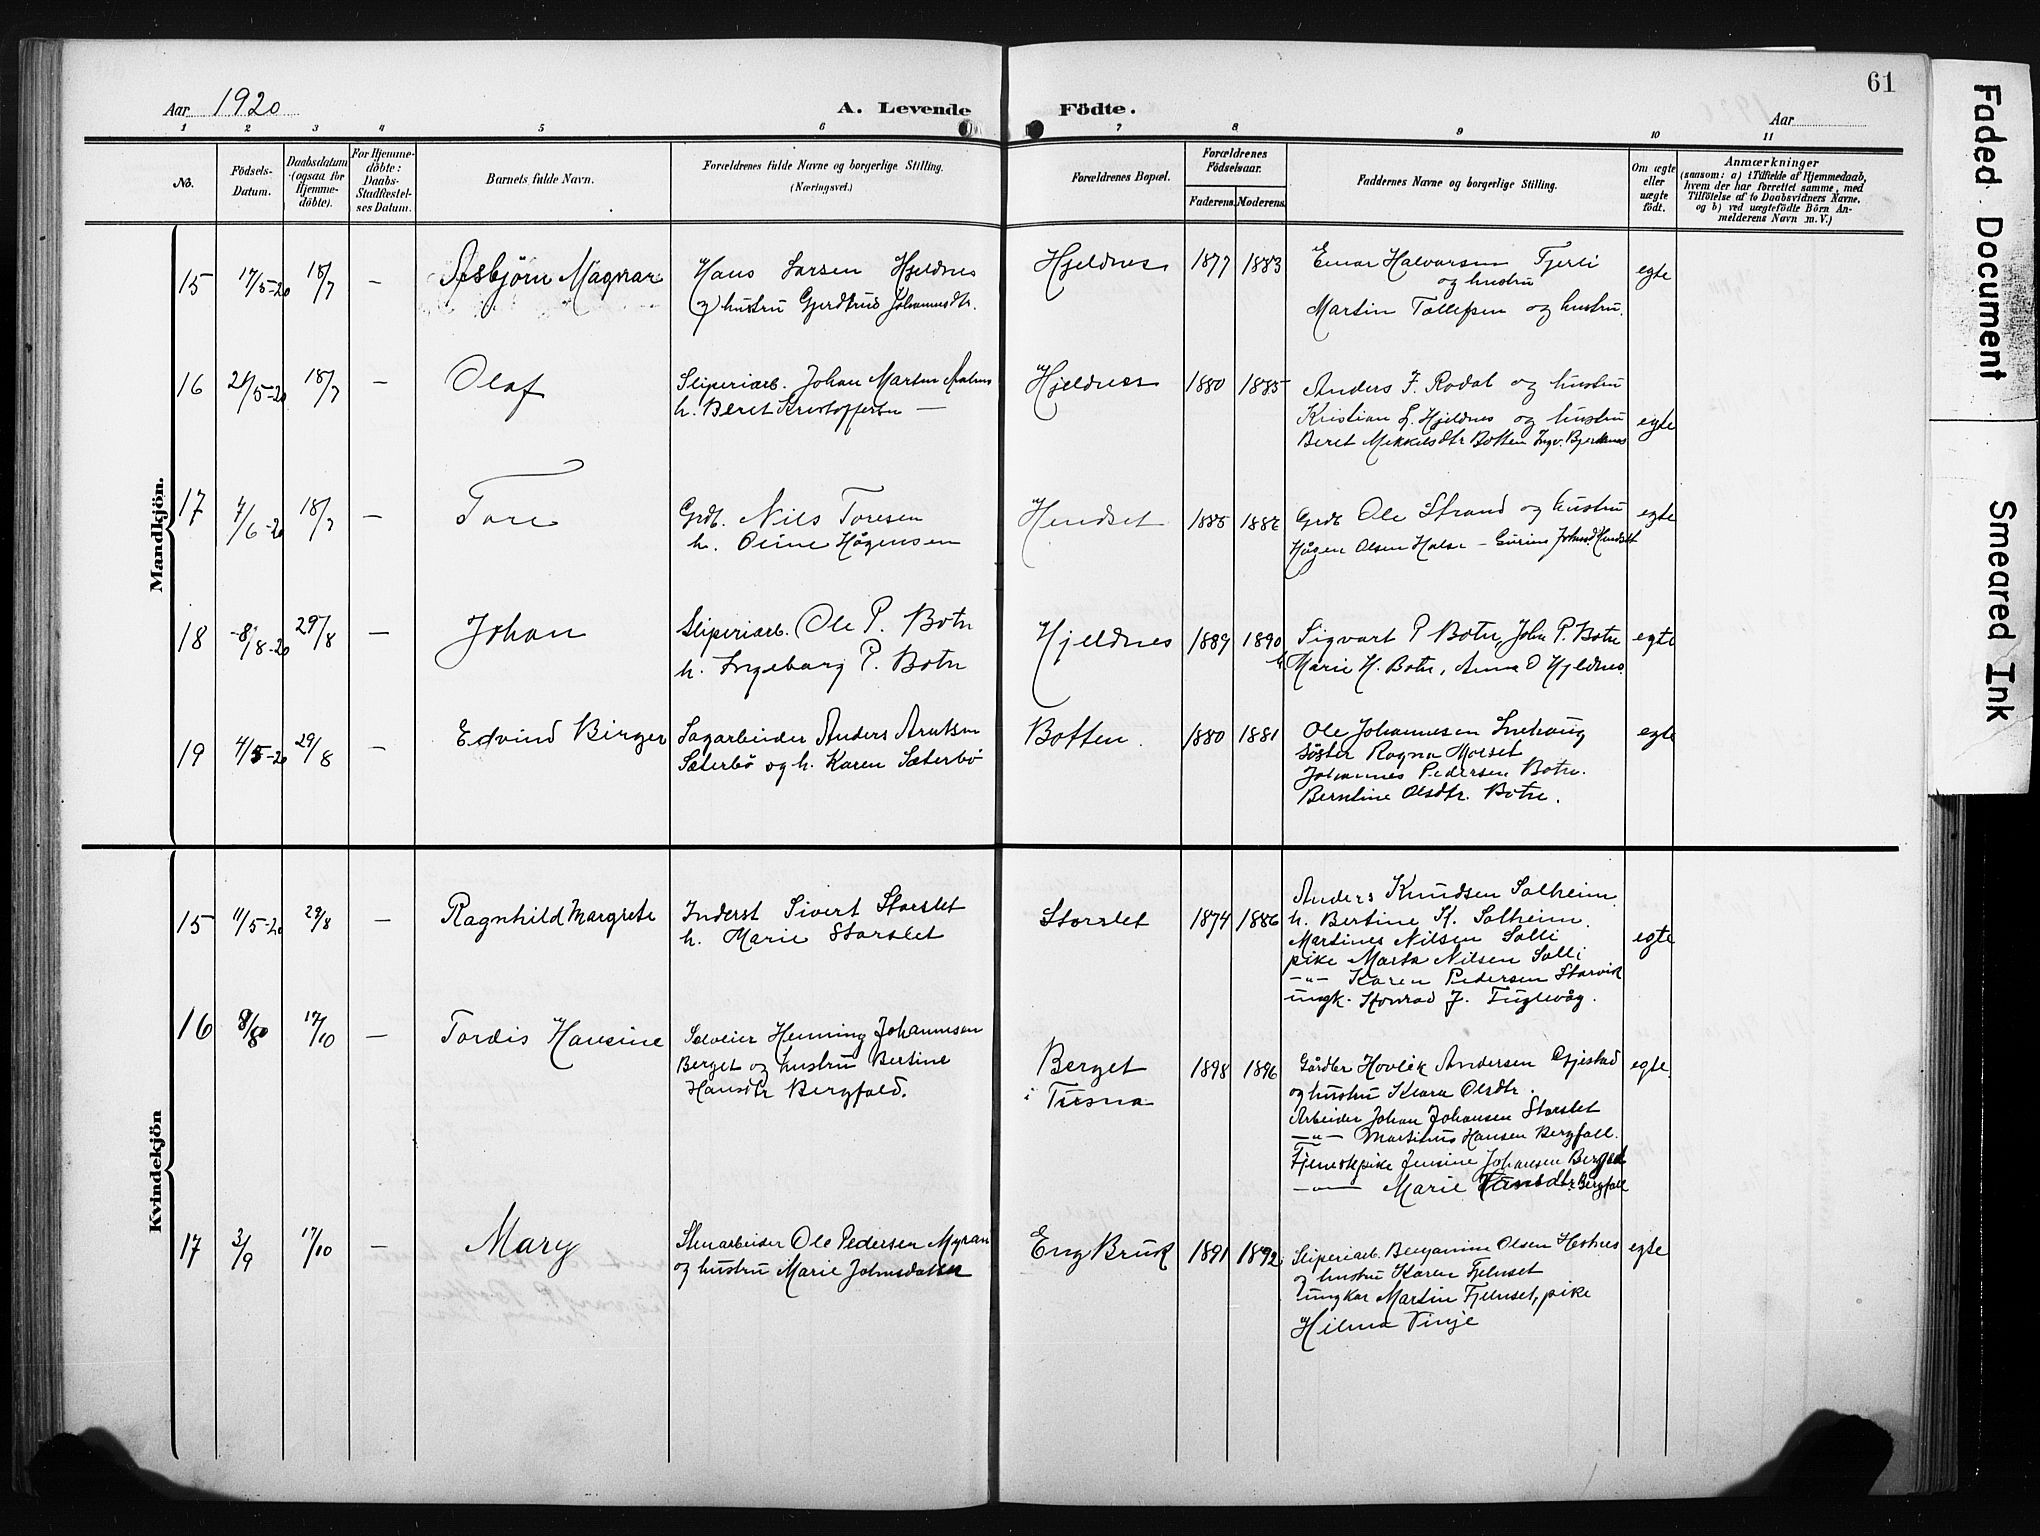 61
Aar 1920
A. Levende Födte.
Aar
1 2 3 4 5 6 7 8 9 10 11
No.
Födsels-
Datum.
Daabsdatum
(ogsaa for
Hjemme-
döbte).
For Hjemme-
döbte:
Daabs-
Stadfæstel-
ses Datum.
Barnets fulde Navn.
Forældrenes fulde Navne og borgerlige Stilling.
(Næringsvei.)
Forældrenes Bopæl.
Forældrenes
Födselsaar.
Faderens. Moderens.
Faddernes Navne og borgerlige Stilling.
Om ægte
eller
uægte
födt.
Anmærkninger
(saasom: a) i Tilfælde af Hjemmedaab,
hvem der har forrettet samme, med
Tilföielse af to Daabsvidners Navne,
og b) ved uægtefödte Börn An-
melderens Navn m. V.)
Mandkjön.
15 17/5-20 18/7 — Asbjörn Magnar
Hans Larsen Hjeldnes
og hustru Gjerdtrud Johannesdtr.
Hjeldnes 1877 1883
Einar Halvorsen Fjerli
og hustru
Martin Tollefsen og hustru.
egte
16 21/5-20 18/7 — Olaf
Sliperiarb. Johan Martin
h. Beret Kristoffersen —
Hjeldnes 1880 1885
Anders J. Rodal og hustru
Kristian L. Hjeldnes og hustru
Beret Mikkelsdtr Botten Ingv. Bjerknes
egte
17 4/6-20 18/7 — Tore
Grdb. Nils Toresen
h. Oline Hågensen
Hendset 1885
Grdb Ole Strand og hustru
Hågen Olsen Halse — Hendset
egte
18 8/8-20 29/8 — Johan
Sliperiarb. Ole P. Botn
h. Ingeborg P. Botn
Hjeldnes 1889 1890
Sigvart P Botn, John P. Botn
Marie H. Botn, Anna O Hjeldnes.
egte
19 4/5-20 29/8 — Edvind Birger
Sagarbeider Anders Arntsen
Sæterbö og h. Karen Sæterbö
Botten. 1880 1881
Ole Johannesen Snekvig
söster Ragna Morset
Johannes Pedersen Botn.
Berntine Olsdtr. Botn.
egte
Kvindekjön
15 11/5-20 29/8 — Ragnhild Margrete
Inderst Sivert Storslet
h. Marie Storslet
Storslet 1874 1886
Anders Knudsen Solheim
h. Bertine K. Solheim.
Martines Nilsen Solli
pike Marta Nilsen Solli
—"— Karen Pedersen Storvik
ungk. Konrad J. Fuglevåg.
egte
16 8/8 17/10 — Tordis Hansine
Selveier Henning Johannesen
Berget og hustru Bertine
Hansdtr Bergfald.
Berget
i Tusna
1898 1896
Gårdbr Hovlik Andersen Gjestad
og hustru Klara Olsdtr.
Arbeider Johan Johansen Storslet
—"— Martinus Hansen Bergfall.
Tjenestepike Jensine Johansen Berget
—"— Marie Hansdtr. Bergfall
egte.
17 3/9 17/10 — Mary
Stenarbeider Ole Pedersen Myran
og hustru Marie Johnsdatter
Eng Bruk 1891 1892
Sliperiarb. Benjamin Olsen Hestnes
og hustru Karen Fjelnset
ungkar Martin Fjelnset, pike
Hilma Vinje
egte
Faded Document
Smeared Ink